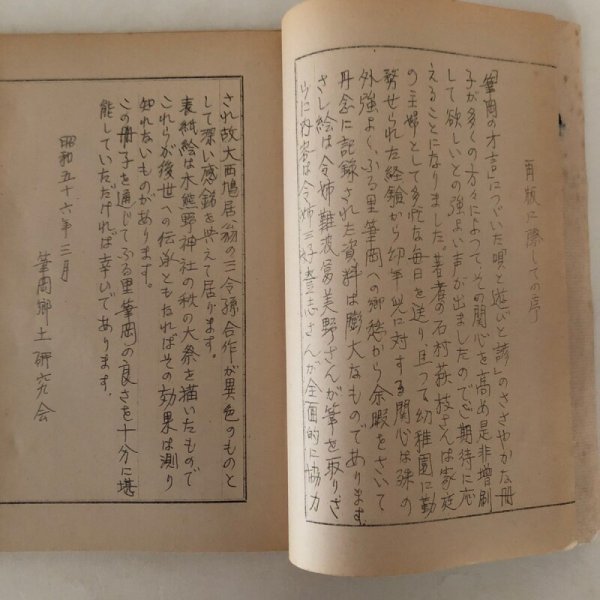 再版に際しての序
「筆岡の方言」につづいた唄と遊びと諺」のささやかな冊
子が多くの方々によって、その関心を高め是非増刷
して欲しいとの強よい声が出ましたのでご期待に応
えることになりました。著者の石村萩枝さんは家庭
の主婦として多忙な毎日を送り、且つる幼稚園に勤
務せられた経験から幼年児に対する関心は殊の
外強よく、ふる里筆岡への郷愁から余暇をさいて
丹念に記録された資料は膨大なものであります。
さし絵は令姉難波富美野さんが筆を取りざ
らに内容は令姉三好登志さんが全面的に協力
され故大西鳩居翁の三令孫合作が異色のものと
して深い感銘を与えて居ります。
表紙絵は木熊野神社の秋の大祭を描いたもので
これらが後世への伝承ともなればその効果は測り
知れないものがあります。
この冊子を通じてふる里筆岡の良さを十分に堪
能していただければ幸いであります。
昭和五十六年三月
筆岡郷土研究会